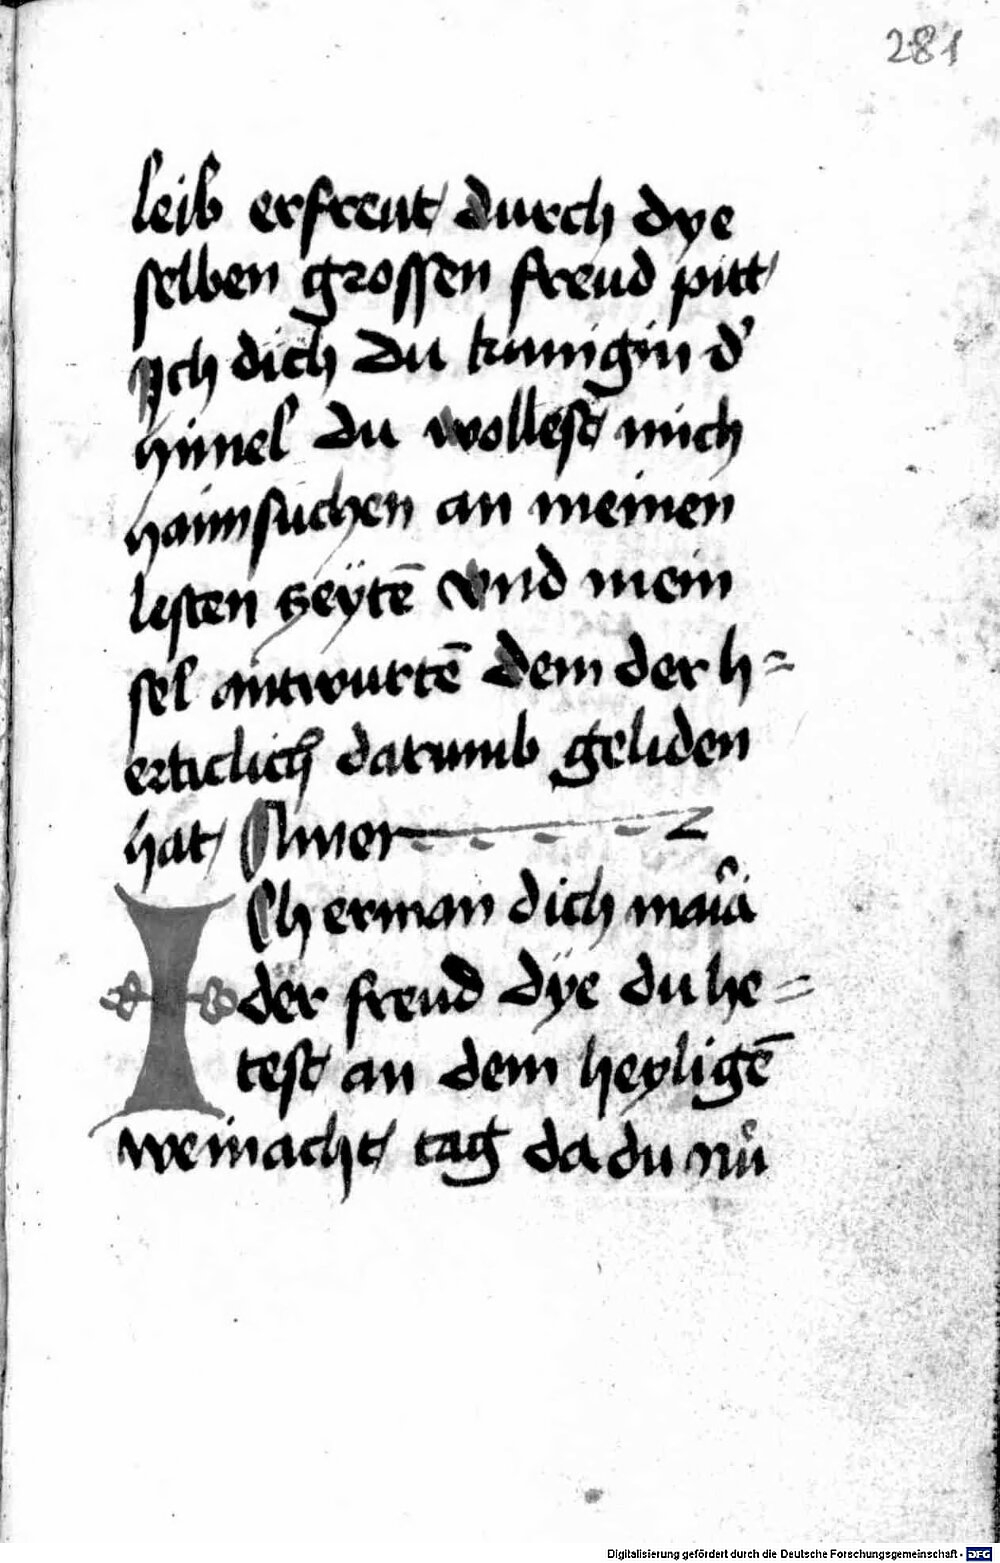 281
leib erfreut durch dye
selben grossen freud pitt
Ich dich du kunigin d'
himel du wollest mich
haimsuchen an meinen
lesten zeÿtē vnd mein
sel antwurtē dem der h=
erticlich darumb geliden
hat Amen
Ich erman dich maria
der freud dÿe du he=
test an dem heyligē
weinacht tag da du nū
Digitalisierung gefördert durch die Deutsche Forschungsgemeinschaft - DFG